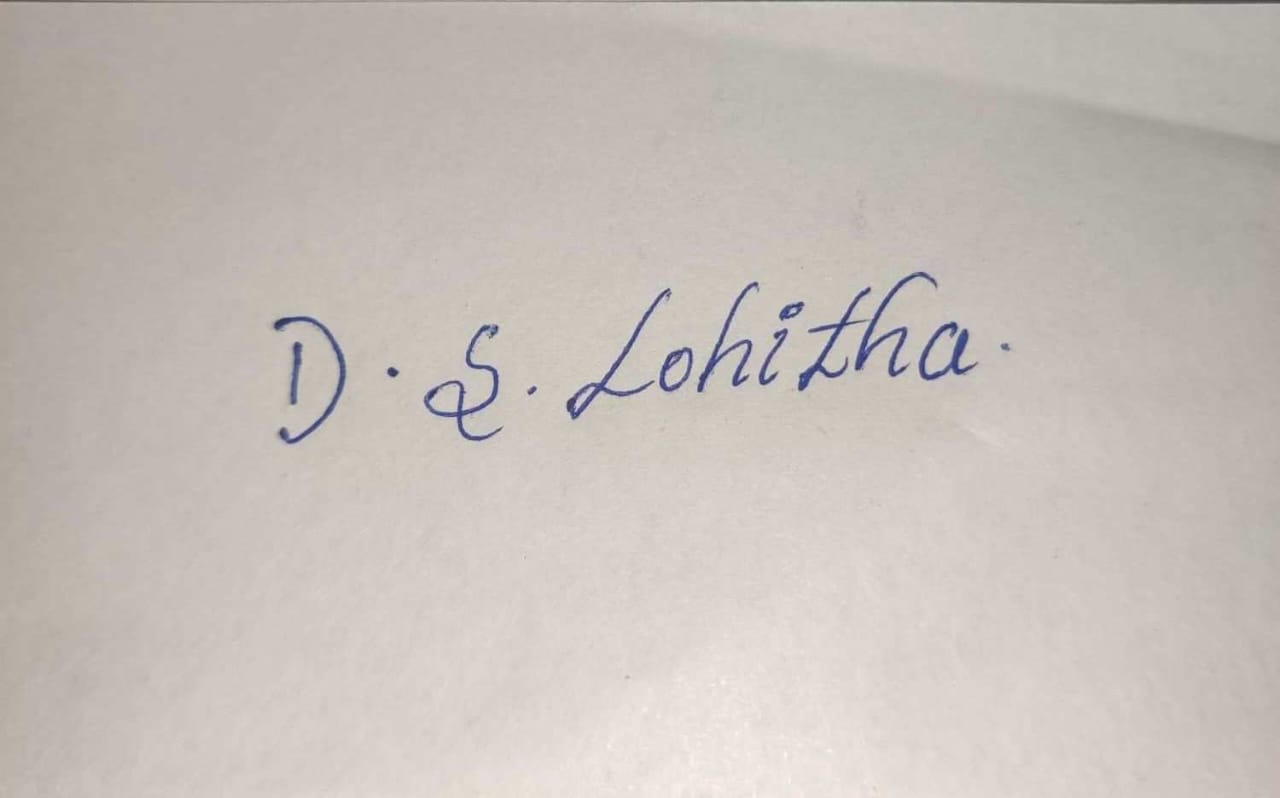 D. S. Lohitha.